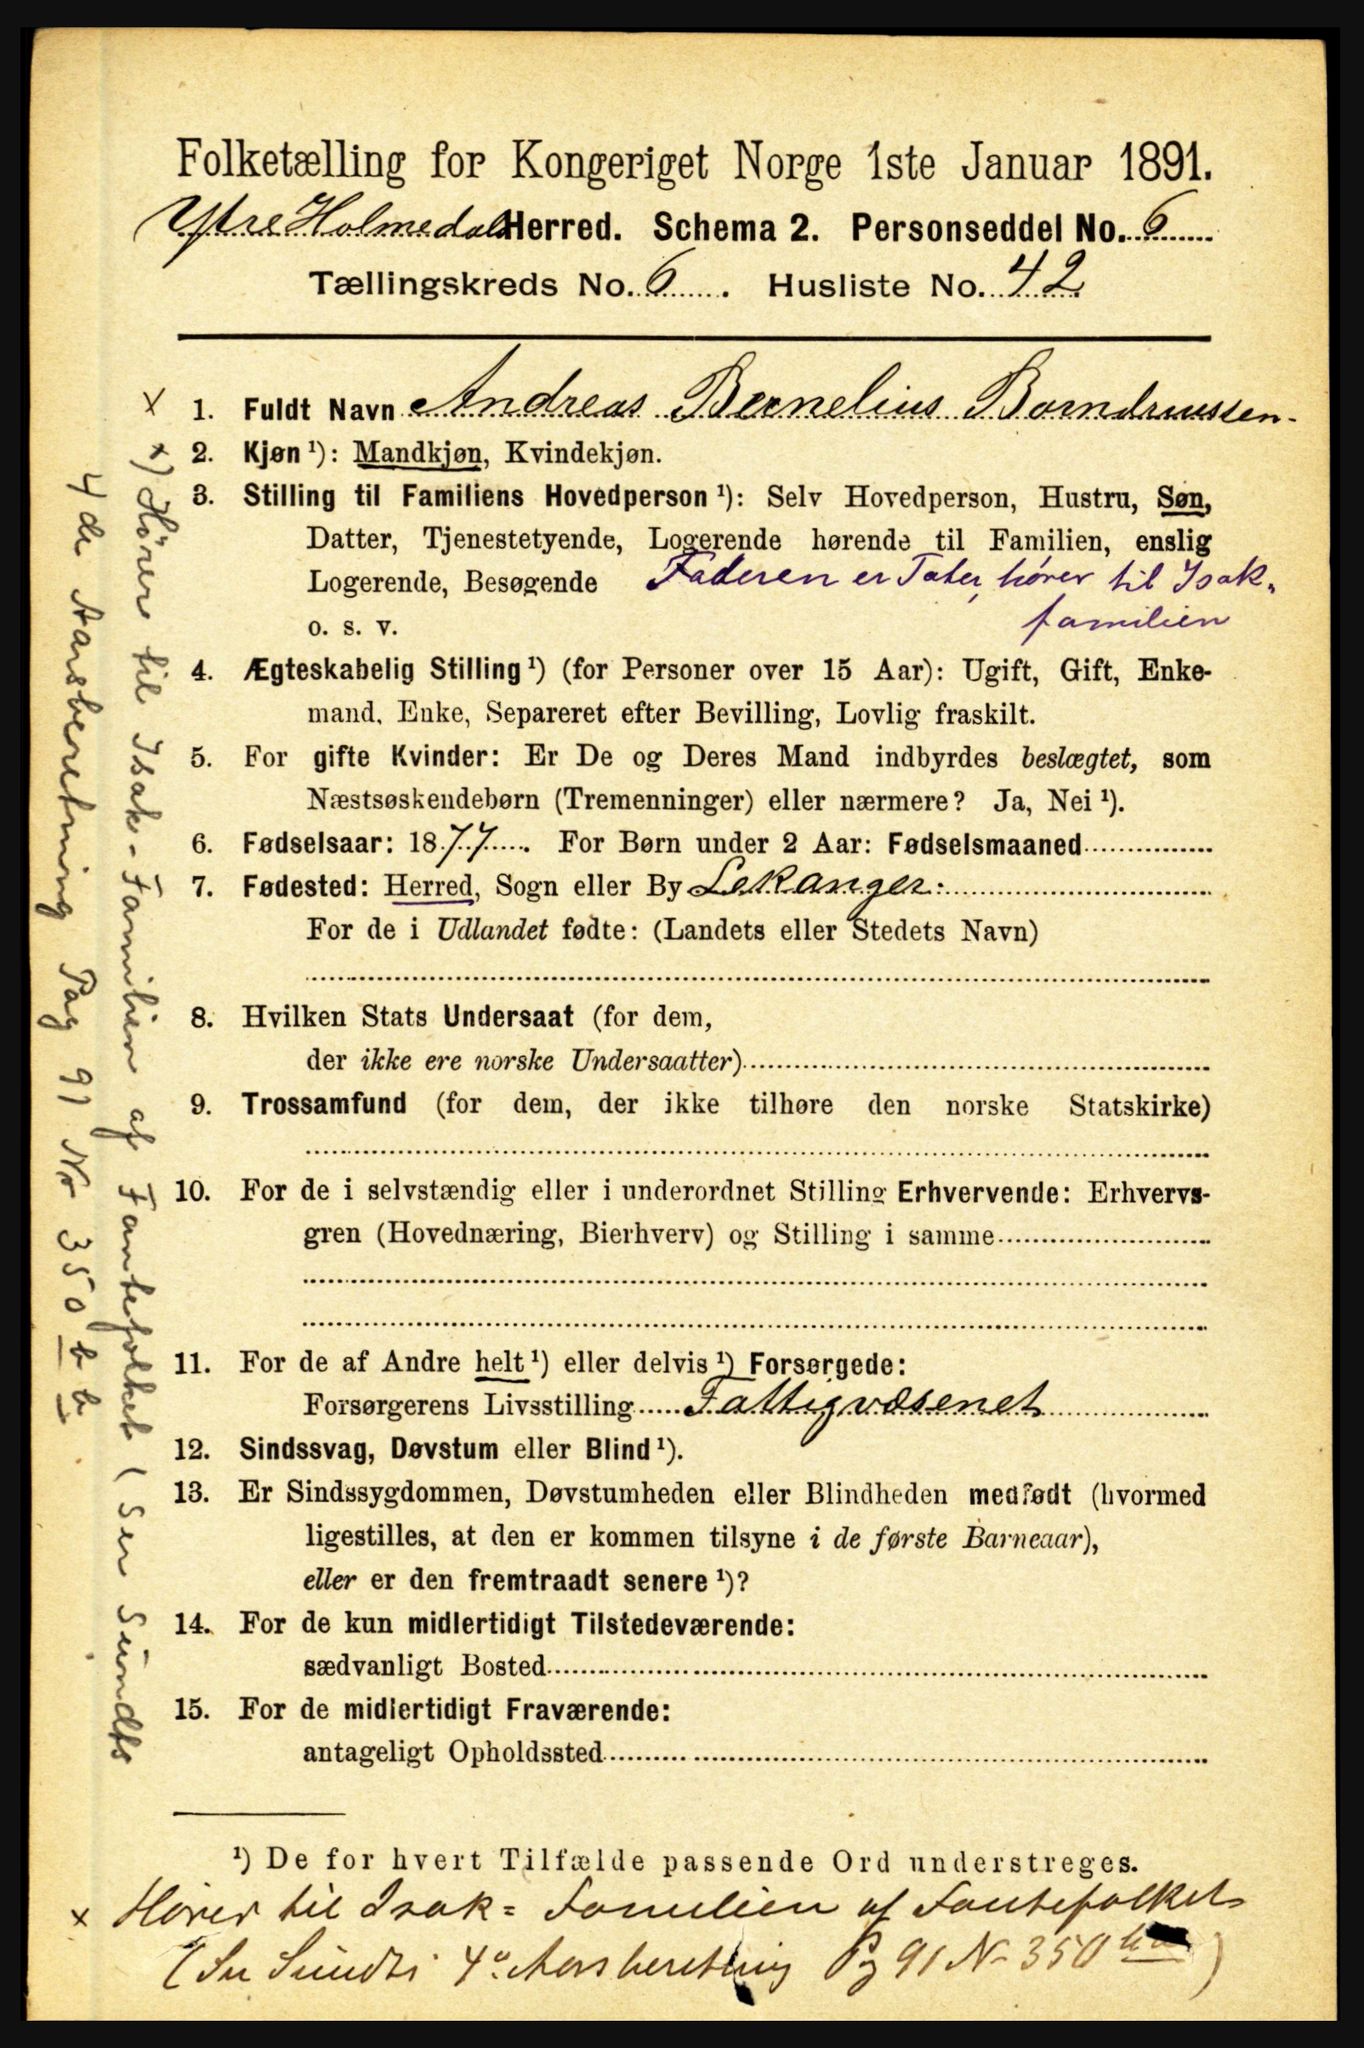 Folketælling for Kongeriget Norge 1ste Januar 1891.
Ytre Holmedals Herred. Schema 2. Personseddel No. 6
Tællingskreds No. 6. Husliste No. 42
x 1. Fuldt Navn Andreas Bernelius
2. Kjøn ¹): Mandkjøn, Kvindekjøn.
3. Stilling til Familiens Hovedperson ¹): Selv Hovedperson, Hustru, Søn,
Datter, Tjenestetyende, Logerende hørende til Familien, enslig
Logerende, Besøgende Faderen er Tater, hører til Isak-
o. s. v. familien
4. Ægteskabelig Stilling ¹) (for Personer over 15 Aar): Ugift, Gift, Enke-
mand, Enke, Separeret efter Bevilling, Lovlig fraskilt.
5. For gifte Kvinder: Er De og Deres Mand indbyrdes beslægtet, som
Næstsøskendebørn (Tremenninger) eller nærmere? Ja, Nei ¹).
6. Fødselsaar: 1877. For Børn under 2 Aar: Fødselsmaaned
7. Fødested: Herred, Sogn eller By Lekanger.
For de i Udlandet fødte: (Landets eller Stedets Navn)
8. Hvilken Stats Undersaat (for dem,
der ikke ere norske Undersaatter)
9. Trossamfund (for dem, der ikke tilhøre den norske Statskirke)
10. For de i selvstændig eller i underordnet Stilling Erhvervende: Erhvervs-
gren (Hovednæring, Bierhverv) og Stilling i samme
11. For de af Andre helt ¹) eller delvis ¹) Forsørgede:
Forsørgerens Livsstilling Fattigvæsenet
12. Sindssvag, Døvstum eller Blind ¹).
13. Er Sindssygdommen, Døvstumheden eller Blindheden medfødt (hvormed
ligestilles, at den er kommen tilsyne i de første Barneaar),
eller er den fremtraadt senere ¹)?
14. For de kun midlertidigt Tilstedeværende:
sædvanligt Bosted
15. For de midlertidigt Fraværende:
antageligt Opholdssted
¹) De for hvert Tilfælde passende Ord understreges.
x Hører til Isak = Familien af Fantefolket
(Se Sundts 4° Aarsberetning Pg 91 N- 350
x) Hører til Isak-Familien af Fantefolket (Se Sundts
4de Aarsberetning Pag 91 Nr 350 b b